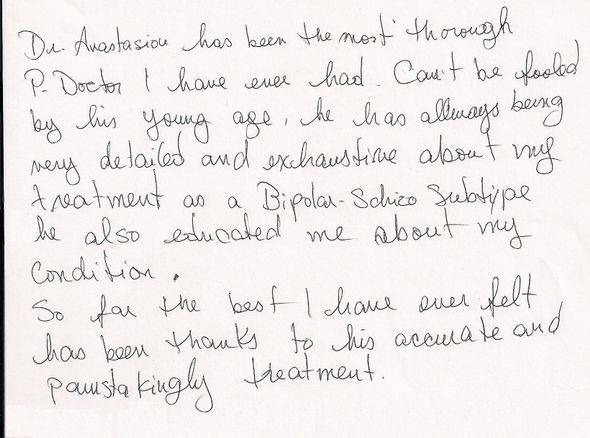 Dr. Anastasiou has been the most thorough
P. Doctor I have ever had. Can't be fooled
by his young age, he has allways being
very detailed and exhaustive about my
treatment as a Bipolar-Schizo Subtype
he also educated me about my
condition.
So far the best I have ever felt
has been thanks to his accurate and
painstakingly treatment.